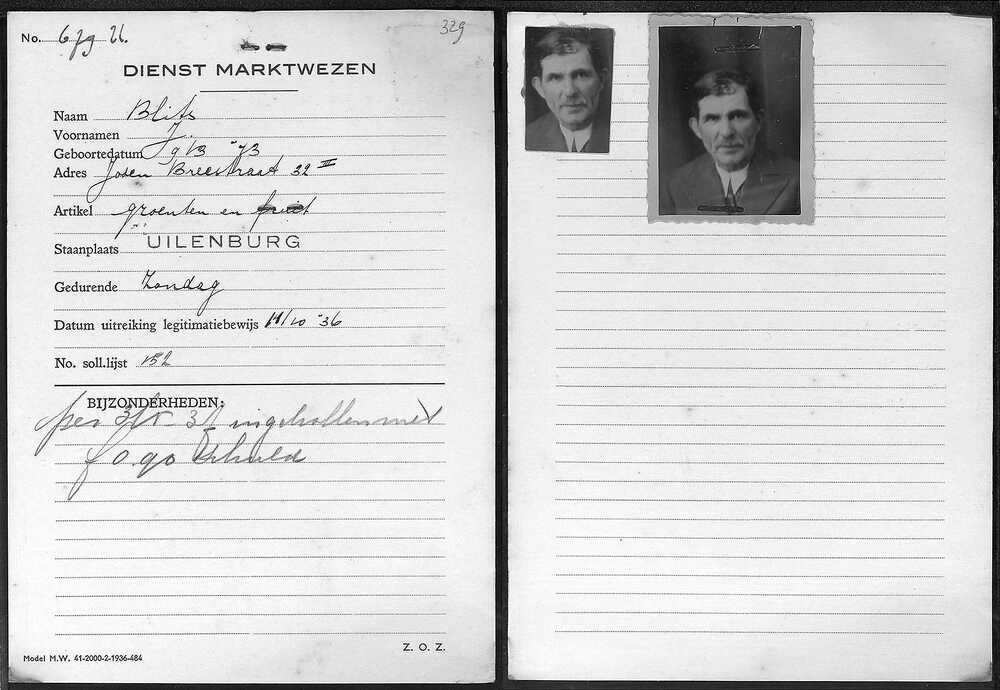 No. 679 21.
329
DIENST MARKTWEZEN
Naam Blits
Voornamen J.
Geboortedatum 9/3 '73
Adres Joden Breestraat 32 III
Artikel groenten en fruit
Staanplaats UILENBURG
Gedurende Zondag
Datum uitreiking legitimatiebewijs 11/10 '36
No. soll.lijst 152
BIJZONDERHEDEN:
per 3/5 ingetrokken met
f 0.90 schuld
Z. O. Z.
Model M.W. 41-2000-2-1936-484